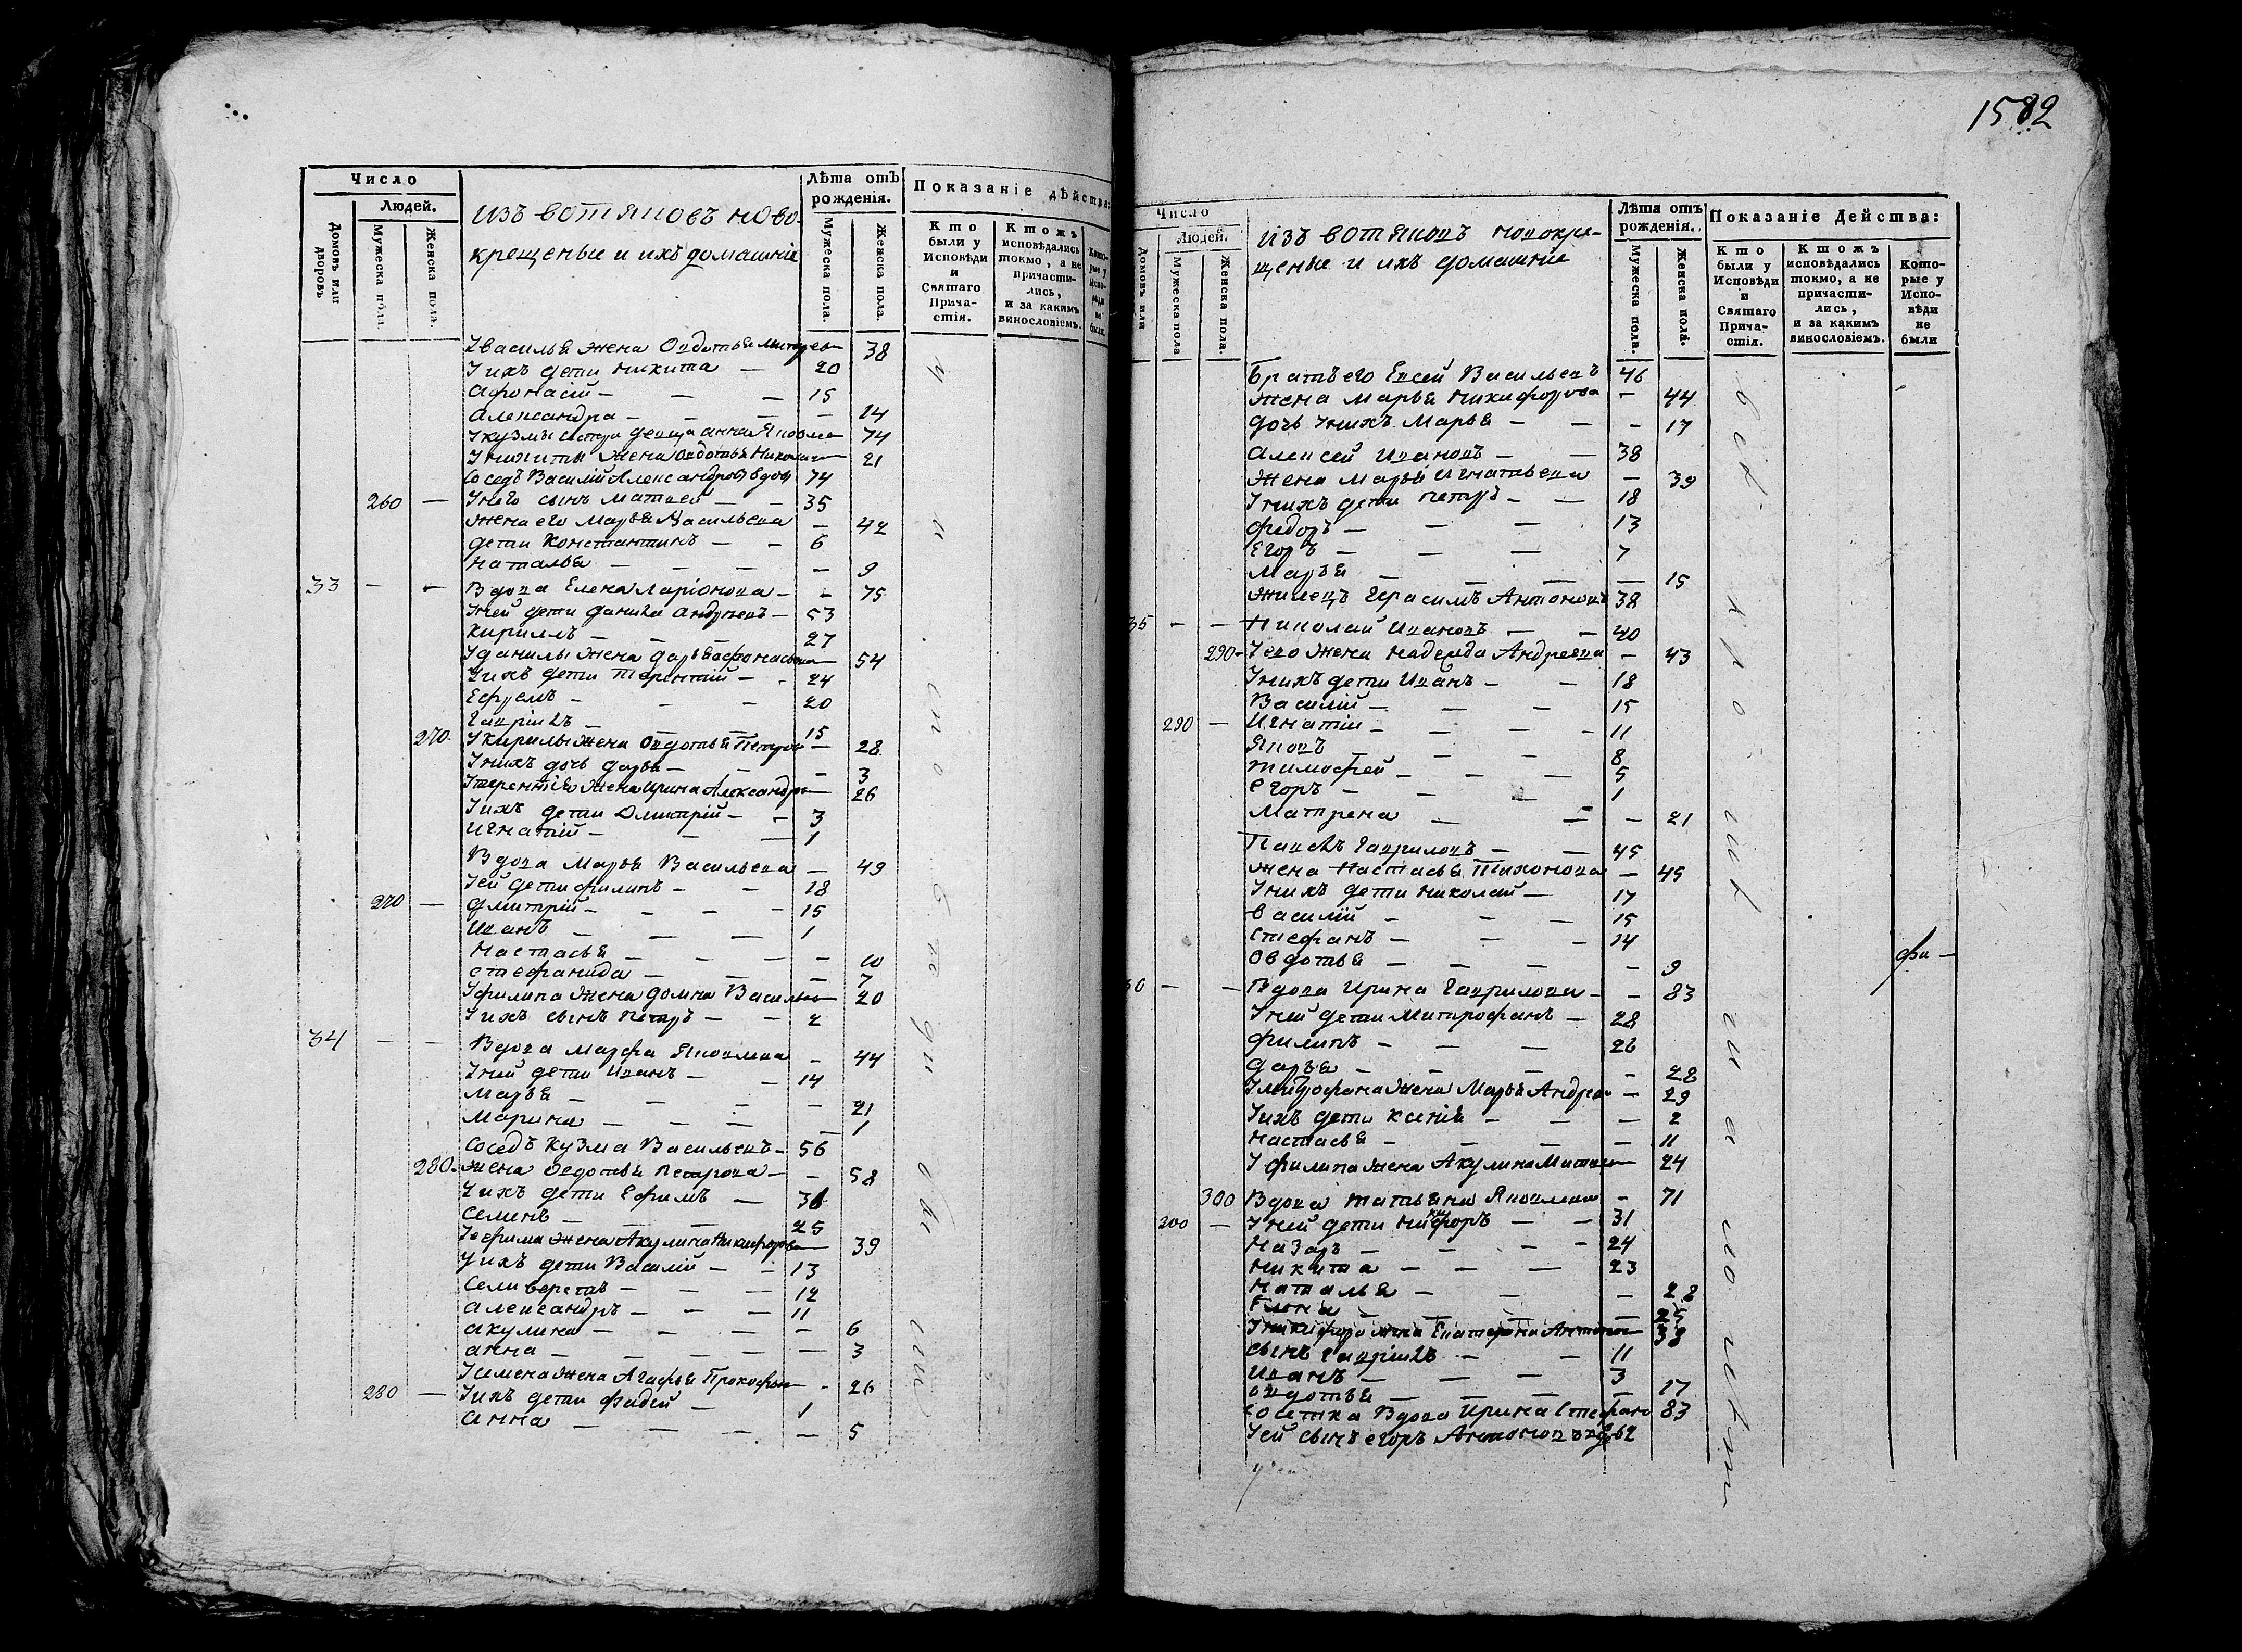 1582
Число
Людей.
Домовъ или дворовъ
Мужеска пола.
Женска пола.
изъ вотяковъ ново-
крещеные и ихъ домашніе
Лѣта отъ рожденія.
Мужеска пола.
Женска пола.
Показаніе дѣйства:
Кто были у Исповѣди и Святаго Прича- стія.
Ктожъ исповѣдались токмо, а не причасти- лись, и за какимъ винословіемъ.
Кото- рые у Испо- вѣди не были.
Увасилья жена Овдотья 38
Уихъ дети никита — 20
Афонасій — 15
Александра — 14
Укузмы девица анна 74
Уникиты жена Овдотья 21
Соседъ Василій Александровъ вдовъ 74
260 — Унего сынъ Матвей — 35
жена его Марья Васильева — 42
дети Константинъ — 6
наталья — 9
33 — — Вдова Елена Ларіонова — 75
Уней дети данила андреевъ — 53
Кирилъ — 27
Уданилы жена дарья афонасьева 54
Уихъ дети терентій — 24
Ефремъ — 20
Гаврилъ — 15
270. Укирилы жена Овдотья Петрова — 28
Унихъ дочь дарья — 3
Утерентія жена Ирина Александрова 26
Уихъ дети Дмитрій — 3
Игнатій — 1
Вдова Марья Васильева — 49
Уей дети филипъ — 18
270 — дмитрій — 15
Иванъ — 1
Настасья — 10
стефанида — 7
Уфилипа жена домна Васильева 20
Уихъ сынъ петръ — 2
34 — — Вдова Марфа Яковлева — 44
Уней дети Иванъ — 14
Марья — 21
Марина — 1
Соседъ Кузма Васильевъ — 56
280. жена Овдотья Петрова — 58
Уихъ дети Ефимъ —
семенъ — 25
Уефима жена Акулина Никифорова 39
Уихъ дети Василій — 13
селиверстъ — 12
александръ — 11
акулина — 6
анна — 3
Усемена жена Агафья Прокофьева 26
280 — Уихъ дети фадей — 1
анна — 5
Число
Людей.
Домовъ или
Мужеска пола
Женска пола.
изъ вотяковъ новокре-
щеные и ихъ домашніе
Лѣта отъ рожденія.
Мужеска пола.
Женска пола.
Показаніе Дейсшва:
Кто были у Исповѣди и Святаго Прича- стія.
Ктожъ исповѣдались токмо, а не причасти- лись, и за какимъ винословіемъ.
Кото- рые у Испо- вѣди не были
Братъ его Евсей Васильевъ 46
жена марья никифорова — 44
дочь унихъ Марья — 17
Алексей Ивановъ — 38
жена Марья Игнатьева — 39
Унихъ дети петръ — 18
федоръ — 13
Егоръ — 7
Марья — 15
жилецъ Герасимъ Антоновъ 38
35 — — Николай Ивановъ — 40
290 — Уево жена надежда Андреева — 43
Унихъ дети Иванъ — 18
Василій — 15
290 — Игнатій — 11
Яковъ — 8
тимофей — 5
Егоръ — 1
Матрена — 21
Павелъ Гавриловъ — 45
жена Настасья Тихонова — 45
Унихъ дети николай — 17
василій — 15
стефанъ — 14
овдотья — 9
— — Вдова Ирина Гаврилова — 83
Уней дети Митрофанъ — 28
филипъ — 26
дарья — 28
Умитрофана жена Марья Андреева — 29
Уихъ дети ксенія — 2
настасья — 11
Уфилипа жена Акулина 24
300 Вдова татьяна Яковлева — 71
200 — Уней дети никифоръ — 31
назаръ — 24
никита — 23
наталья — 28
Елена — 25
Уникифора жена Екатерина Антонова 38
сынъ Гаврилъ — 11
Иванъ — 3
овдотья — 17
соседка Вдова Ирина Стефанова 83
Уей сынъ егоръ Антоновъ 62